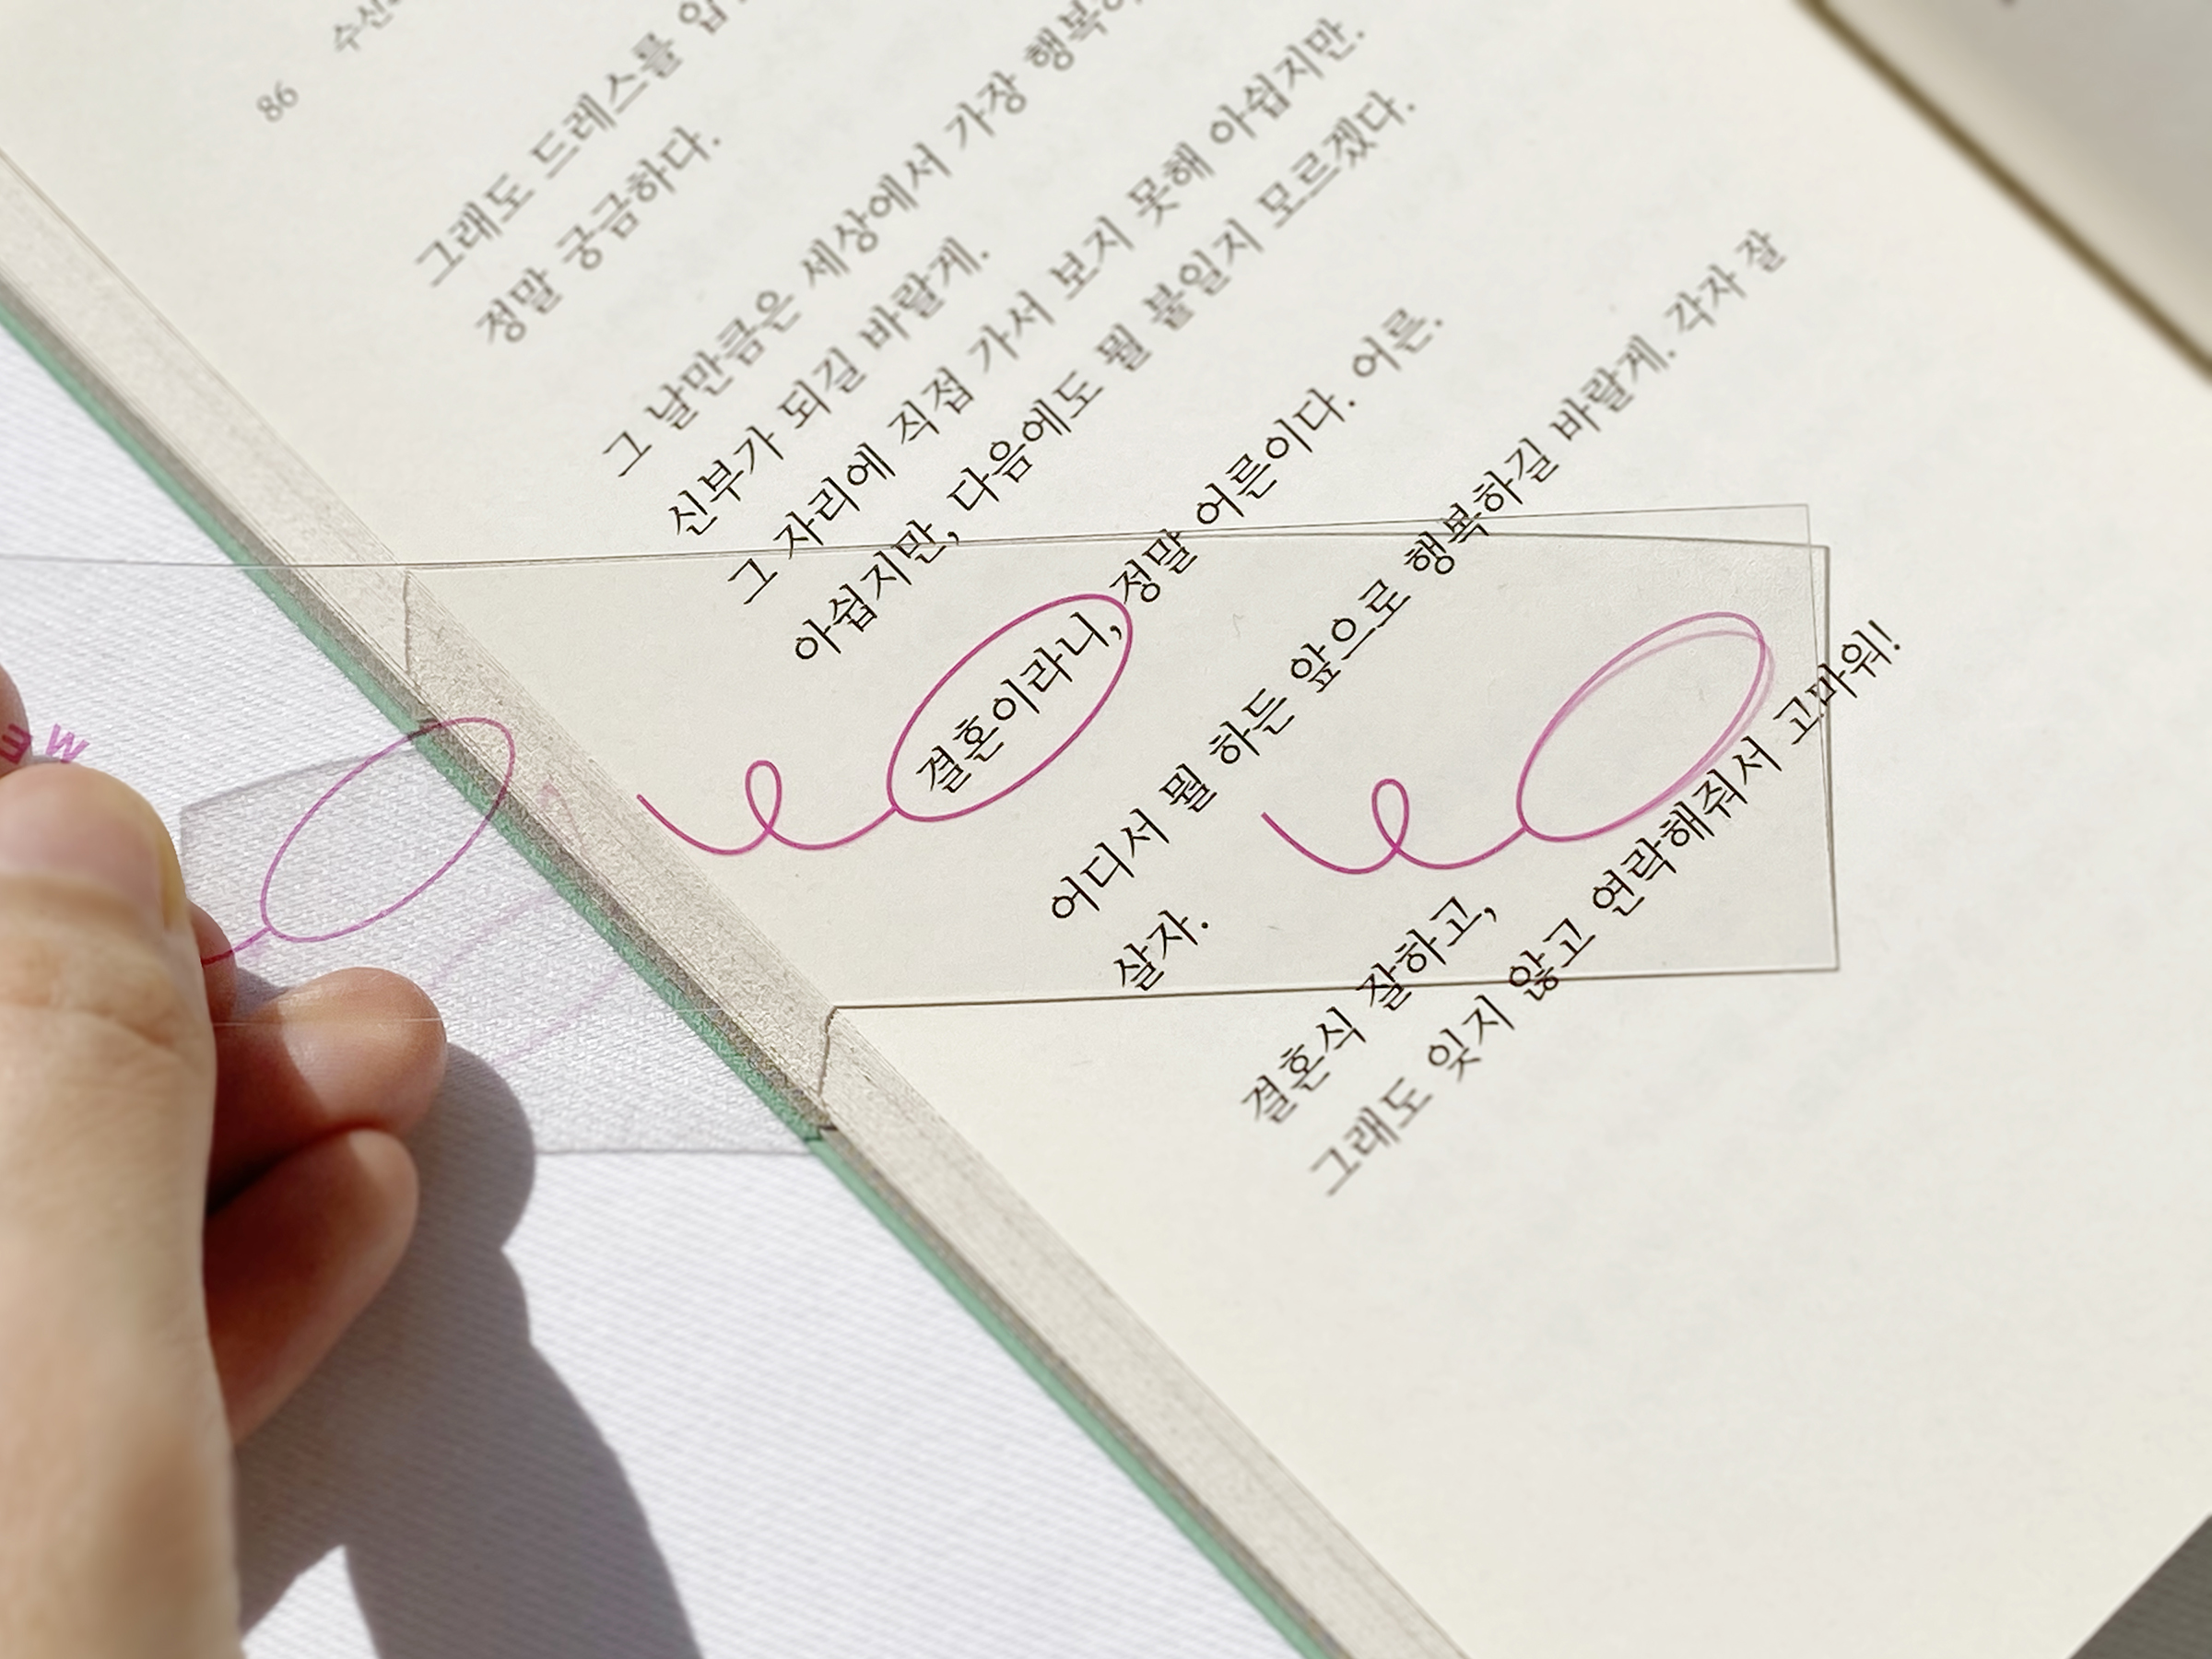 86
그래도 드레스를
정말 궁금하다.
그 날만큼은 세상에서 가장
신부가 되길 바랄게.
그 자리에 직접 가서 보지 못해 아쉽지만.
아쉽지만, 다음에도 뭘 붙일지 모르겠다.
결혼이라니, 정말 어른이다. 어른.
어디서 뭘 하든 앞으로 행복하길 바랄게. 각자 잘
살자.
결혼식 잘하고,
그래도 잊지 않고 연락해줘서 고마워!